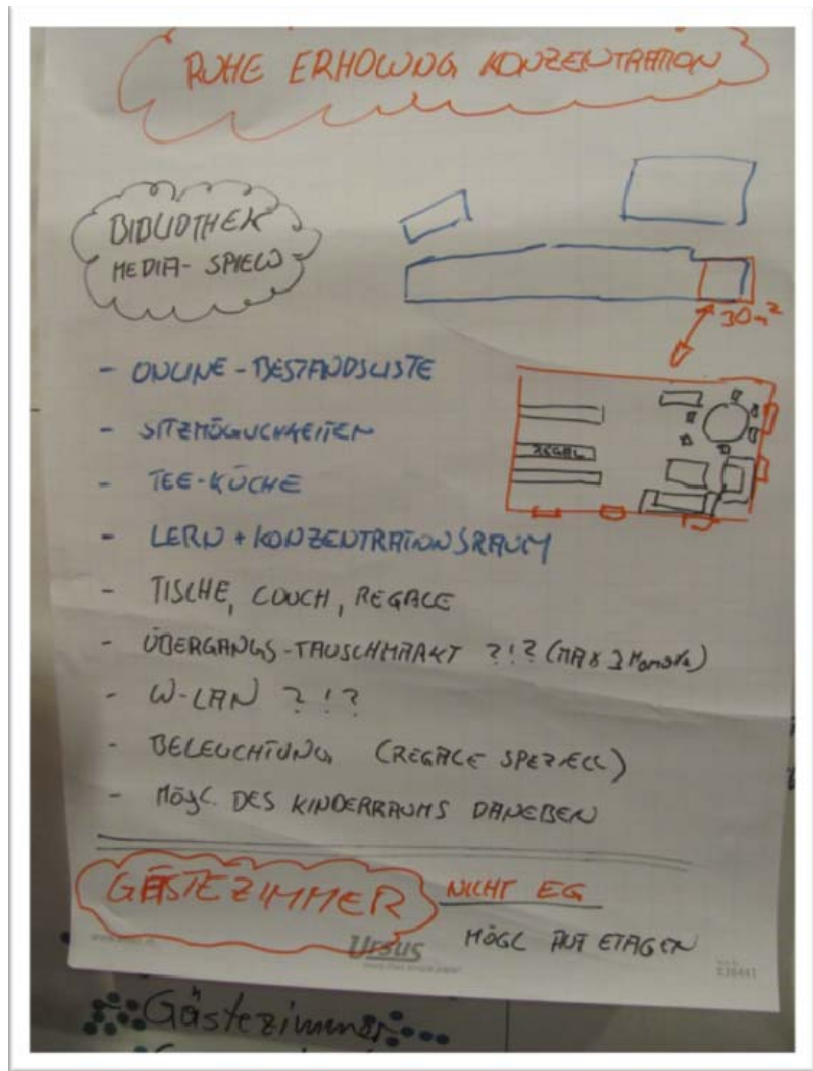 RUHE ERHOLUNG KONZENTRATION
BIBLIOTHEK
MEDIA- SPIELO
30m²
- ONLINE - BESTANDSLISTE
- SITZMÖGLICHKEITEN
REGAL
- TEE-KÜCHE
- LERN + KONZENTRATIONSRAUM
- TISCHE, COUCH, REGALE
- ÜBERGANGS-TAUSCHMARKT ?!? (MAX 3 Monate)
- W-LAN ?!?
- BELEUCHTUNG (REGALE SPEZIELL)
- MÖGL. DES KINDERRAUMS DANEBEN
GÄSTEZIMMER NICHT EG
MÖGL AUF ETAGEN
Ursus
Gästezimmer